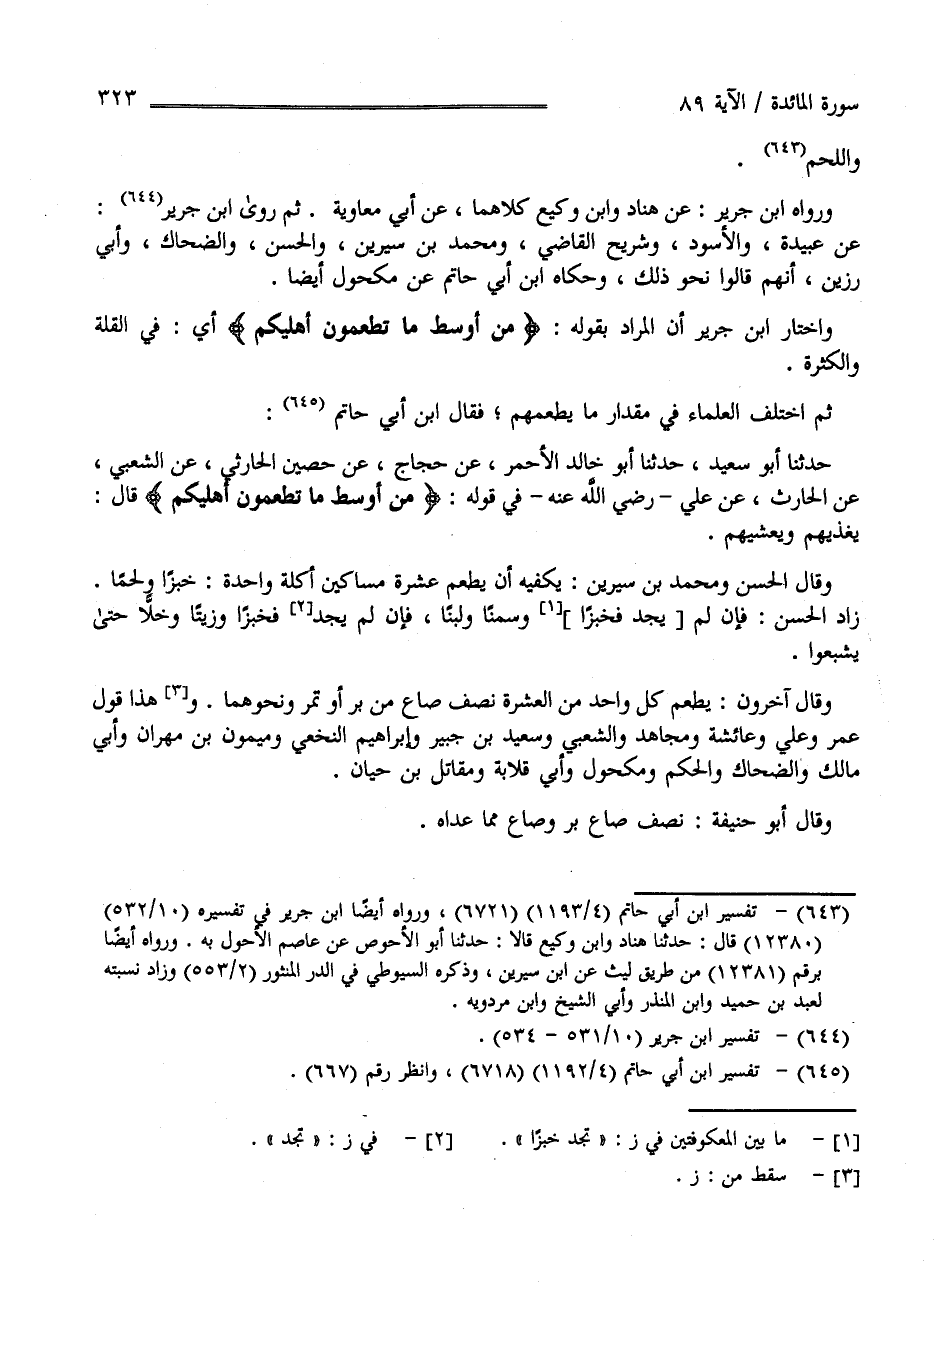 سورة المائدة / الآية ٨٩ ٣٢٣
واللحم(٦٤٣) .
ورواه ابن جرير : عن هناد وابن وكيع كلاهما ، عن أبي معاوية . ثم روىٰ ابن جرير(٦٤٤) :
عن عبيدة ، والأسود ، وشريح القاضي ، ومحمد بن سيرين ، والحسن ، والضحاك ، وأبي
رزين ، أنهم قالوا نحو ذلك ، وحكاه ابن أبي حاتم عن مكحول أيضا .
واختار ابن جرير أن المراد بقوله : ﴿ من أوسط ما تطعمون أهليكم ﴾ أي : في القلة
والكثرة .
ثم اختلف العلماء في مقدار ما يطعمهم ؛ فقال ابن أبي حاتم (٦٤٥) :
حدثنا أبو سعيد ، حدثنا أبو خالد الأحمر ، عن حجاج ، عن حصين الحارثي ، عن الشعبي ،
عن الحارث ، عن علي - رضي اللَّه عنه - في قوله : ﴿ من أوسط ما تطعمون أهليكم ﴾ قال :
يغذيهم ويعشيهم .
وقال الحسن ومحمد بن سيرين : يكفيه أن يطعم عشرة مساكين أكلة واحدة : خبزًا ولحمًا .
زاد الحسن : فإن لم [ يجد فخبزًا ][١] وسمنًا ولبنًا ، فإن لم يجد[٢] فخبزًا وزيتًا وخلًّا حتىٰ
يشبعوا .
وقال آخرون : يطعم كل واحد من العشرة نصف صاع من بر أو تمر ونحوهما . و[٣] هذا قول
عمر وعلي وعائشة ومجاهد والشعبي وسعيد بن جبير وإبراهيم النخعي وميمون بن مهران وأبي
مالك والضحاك والحكم ومكحول وأبي قلابة ومقاتل بن حيان .
وقال أبو حنيفة : نصف صاع بر وصاع مما عداه .
(٦٤٣) - تفسير ابن أبي حاتم (١١٩٣/٤) (٦٧٢١) ، ورواه أيضًا ابن جرير في تفسيره (٥٣٢/١٠)
(١٢٣٨٠) قال : حدثنا هناد وابن وكيع قالا : حدثنا أبو الأحوص عن عاصم الأحول به . ورواه أيضًا
برقم (١٢٣٨١) من طريق ليث عن ابن سيرين ، وذكره السيوطي في الدر المنثور (٥٥٣/٢) وزاد نسبته
لعبد بن حميد وابن المنذر وأبي الشيخ وابن مردويه .
(٦٤٤) - تفسير ابن جرير (٥٣١/١٠ - ٥٣٤) .
(٦٤٥) - تفسير ابن أبي حاتم (١١٩٢/٤) (٦٧١٨) ، وانظر رقم (٦٦٧) .
[١] - ما بين المعكوفتين في ز : « تجد خبزًا » . [٢] - في ز : « تجد » .
[٣] - سقط من : ز .